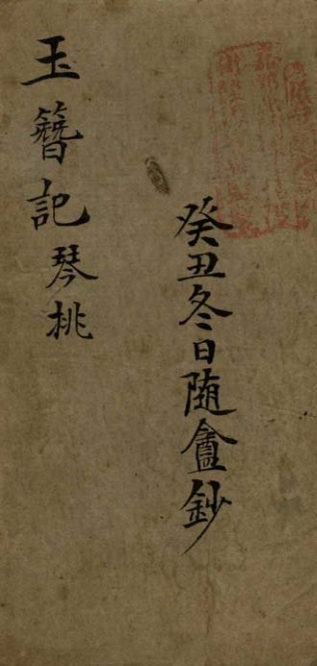 玉簪記琴桃
癸丑冬日随盦鈔